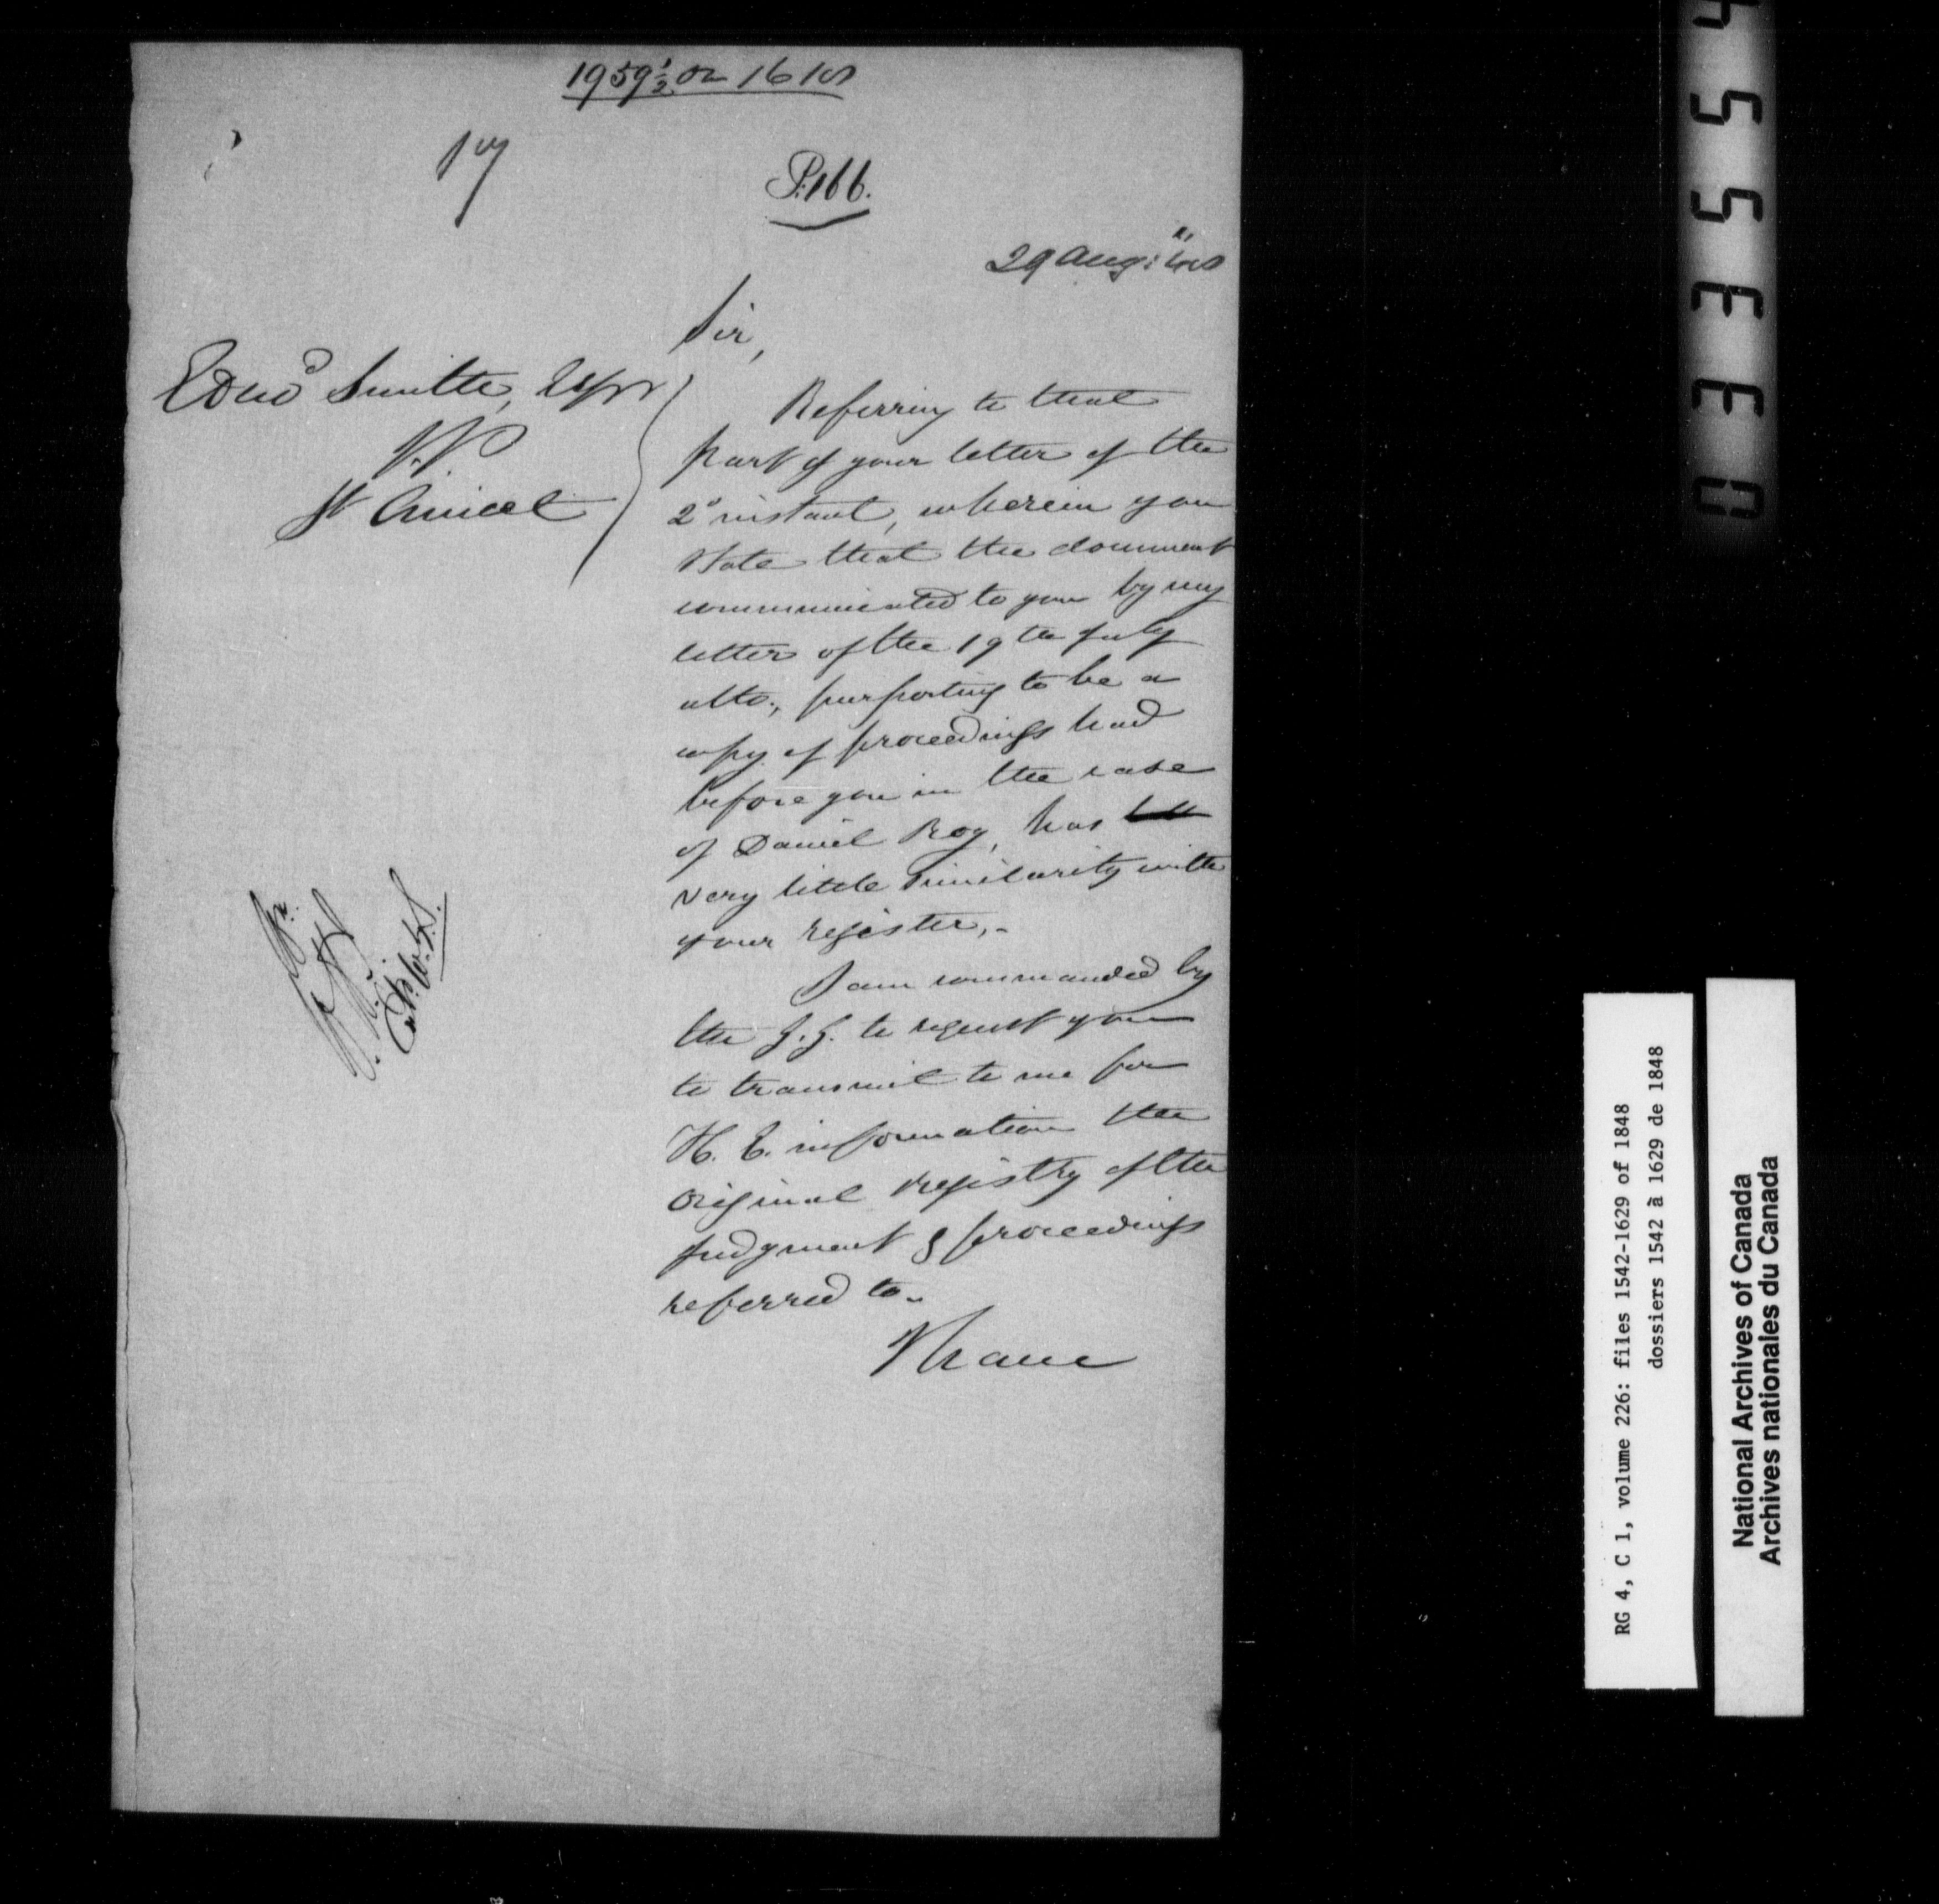 1959½ on 1610
P. 166.
29 Aug: "48
Sir,
Edwd Smith, Esqr
J.P.
St Anicet
Referring to that
part of your letter of the
2d instant, wherein you
state that the document
communicated to you by my
letter of the 19th July
ulto., purporting to be a
copy of proceedings had
before you in the case
of Daniel Roy, has
very little similarity with
your register,.
I am commanded by
the G.G. to request you
to transmit to me for
H. E. information the
original registry of the
judgment & proceedings
referred to..
I have
RG 4, C 1, volume 226: files 1542-1629 of 1848
dossiers 1542 à 1629 de 1848
National Archives of Canada
Archives nationales du Canada